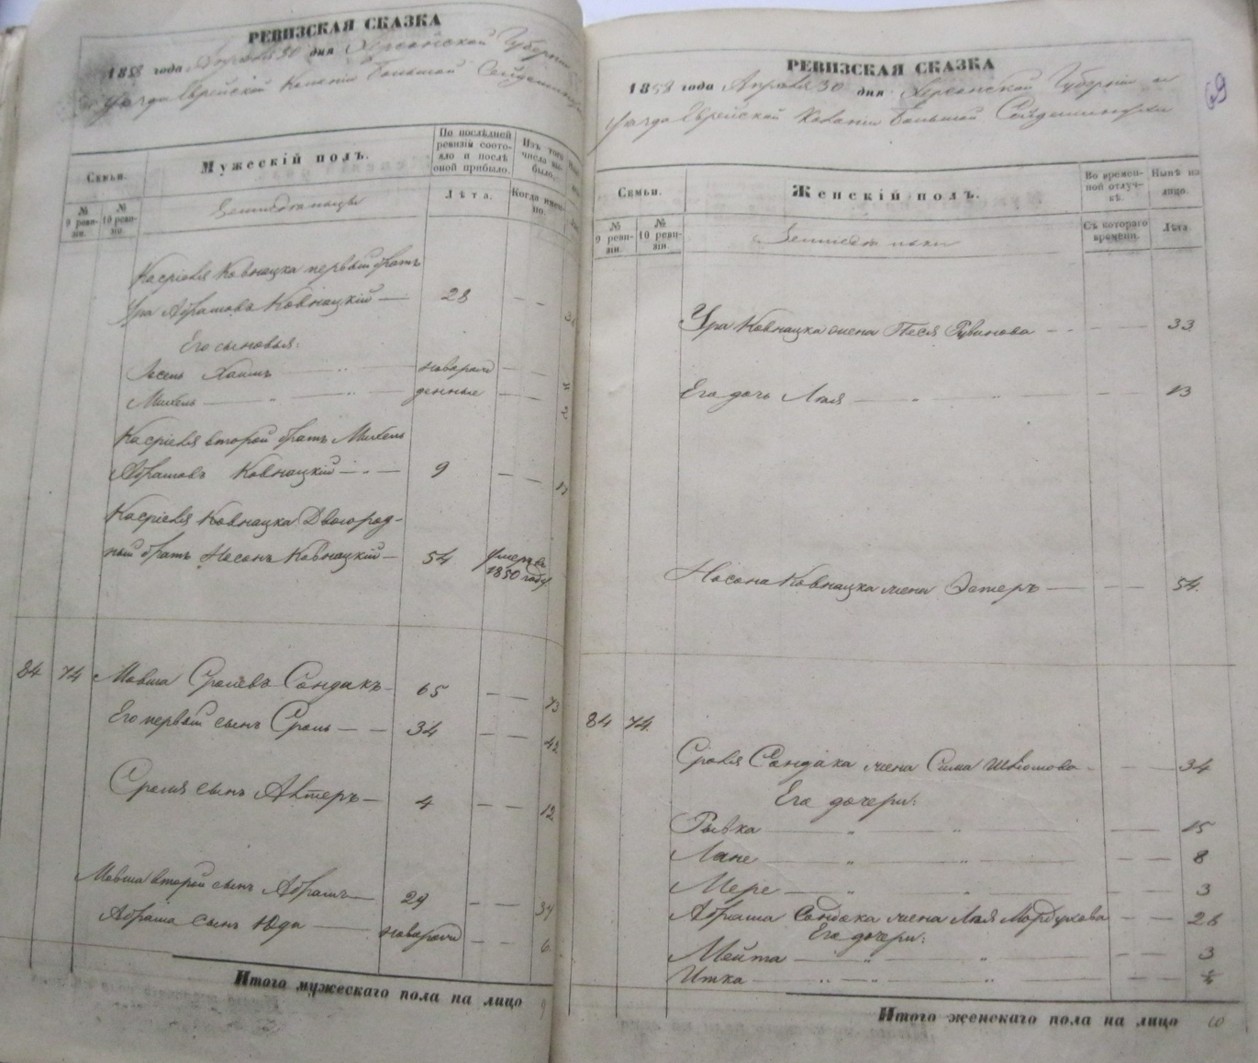 РЕВИЗСКАЯ СКАЗКА
1858 года Апреля 30 дня Херсонской Губернии
уезда Еврейской Колонии Большой Сейдеминухи
Семьи.
Мужескій полъ.
По послѣдней ревизіи состояло и послѣ оной прибыло.
Изъ того числа выбыло.
№ 9 ревизіи.
№ 10 ревизіи.
Лѣта.
Когда именно.
Касріеля Ковнацка первый братъ
Ура Абрамовъ Ковнацкій — 28 — —
Его сыновья:
Іосепъ Хаимъ — новорож — —
Михель — денные — — 2
Касріеля второй братъ Михель
Абрамовъ Ковнацкій — 9 — —
Касріеля Ковнацка Двоюрод-
ный братъ Носонъ Ковнацкій — 54 умеръ въ 1850 году
84 74 Мовша Сролевъ Сондакъ — 65 — — 73
Его первый сынъ Сроль — — 34 — — 42
Сроля сынъ Алтеръ — 4 — — 12
Мовша второй сынъ Абрамъ — 29 — — 37
Абрама сынъ Юда — новорожд — — 6
Итого мужескаго пола на лицо 9
69
РЕВИЗСКАЯ СКАЗКА
1858 года Апреля 30 дня Херсонской Губерніи и
уезда Еврейской Колоніи Большой Сейдеминухи
Семьи.
Женскій полъ.
Во временной отлучкѣ.
Нынѣ на лицо.
№ 9 ревизіи.
№ 10 ревизіи.
Съ котораго времени.
Лѣта.
Ура Ковнацка жена Песя Рувинова — — — 33
Его дочь Лея — — — 13
Носона Ковнацка жена Эстеръ — — — 54.
84 74.
Сроля Сондака жена Сима Шлиомова — — — 34
Его дочери:
Рывка — — — 15
Лане — — — 8
Мере — — — 3
Абрама Сондака жена Лея Мордухова — — 26
Его дочери:
Мейта — — — 3
Итка — — — ½
Итого женскаго пола на лицо 10